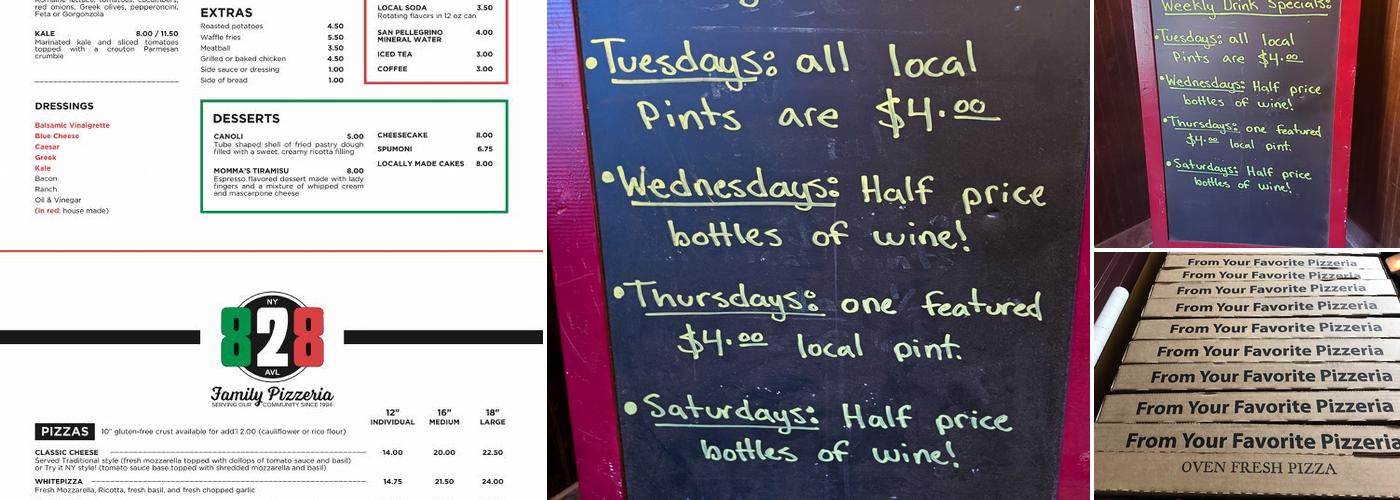 Romaine lettuce, tomatoes, cucumbers,
red onions, Greek olives, pepperoncini,
Feta or Gorgonzola
KALE 8.00 / 11.50
Marinated kale and sliced tomatoes
topped with a crouton Parmesan
crumble
DRESSINGS
Balsamic Vinaigrette
Blue Cheese
Caesar
Greek
Kale
Bacon
Ranch
Oil & Vinegar
(in red: house made)
EXTRAS
Roasted potatoes 4.50
Waffle fries 5.50
Meatball 3.50
Grilled or baked chicken 4.50
Side sauce or dressing 1.00
Side of bread 1.00
LOCAL SODA 3.50
Rotating flavors in 12 oz can
SAN PELLEGRINO 4.00
MINERAL WATER
ICED TEA 3.00
COFFEE 3.00
DESSERTS
CANOLI 5.00
Tube shaped shell of fried pastry dough
filled with a sweet, creamy ricotta filling
MOMMA'S TIRAMISU 8.00
Espresso flavored dessert made with lady
fingers and a mixture of whipped cream
and mascarpone cheese
CHEESECAKE 8.00
SPUMONI 6.75
LOCALLY MADE CAKES 8.00
NY
828
AVL
Family Pizzeria
SERVING OUR COMMUNITY SINCE 1994
12" 16" 18"
INDIVIDUAL MEDIUM LARGE
PIZZAS 10" gluten-free crust available for add'l 2.00 (cauliflower or rice flour)
CLASSIC CHEESE 14.00 20.00 22.50
Served Traditional style (fresh mozzarella topped with dollops of tomato sauce and basil)
or Try it NY style! (tomato sauce base topped with shredded mozzarella and basil)
WHITEPIZZA 14.75 21.50 24.00
Fresh Mozzarella, Ricotta, fresh basil, and fresh chopped garlic
•Tuesdays: all local
Pints are $4.00
•Wednesdays: Half price
bottles of wine!
•Thursdays: one featured
$4.00 local pint.
•Saturdays: Half price
bottles of wine!
Weekly Drink Specials:
•Tuesdays: all local
Pints are $4.00
•Wednesdays: Half price
bottles of wine!
•Thursdays: one featured
$4.00 local pint.
•Saturdays: Half price
bottles of wine!
From Your Favorite Pizzeria
From Your Favorite Pizzeria
From Your Favorite Pizzeria
From Your Favorite Pizzeria
From Your Favorite Pizzeria
From Your Favorite Pizzeria
From Your Favorite Pizzeria
From Your Favorite Pizzeria
From Your Favorite Pizzeria
OVEN FRESH PIZZA